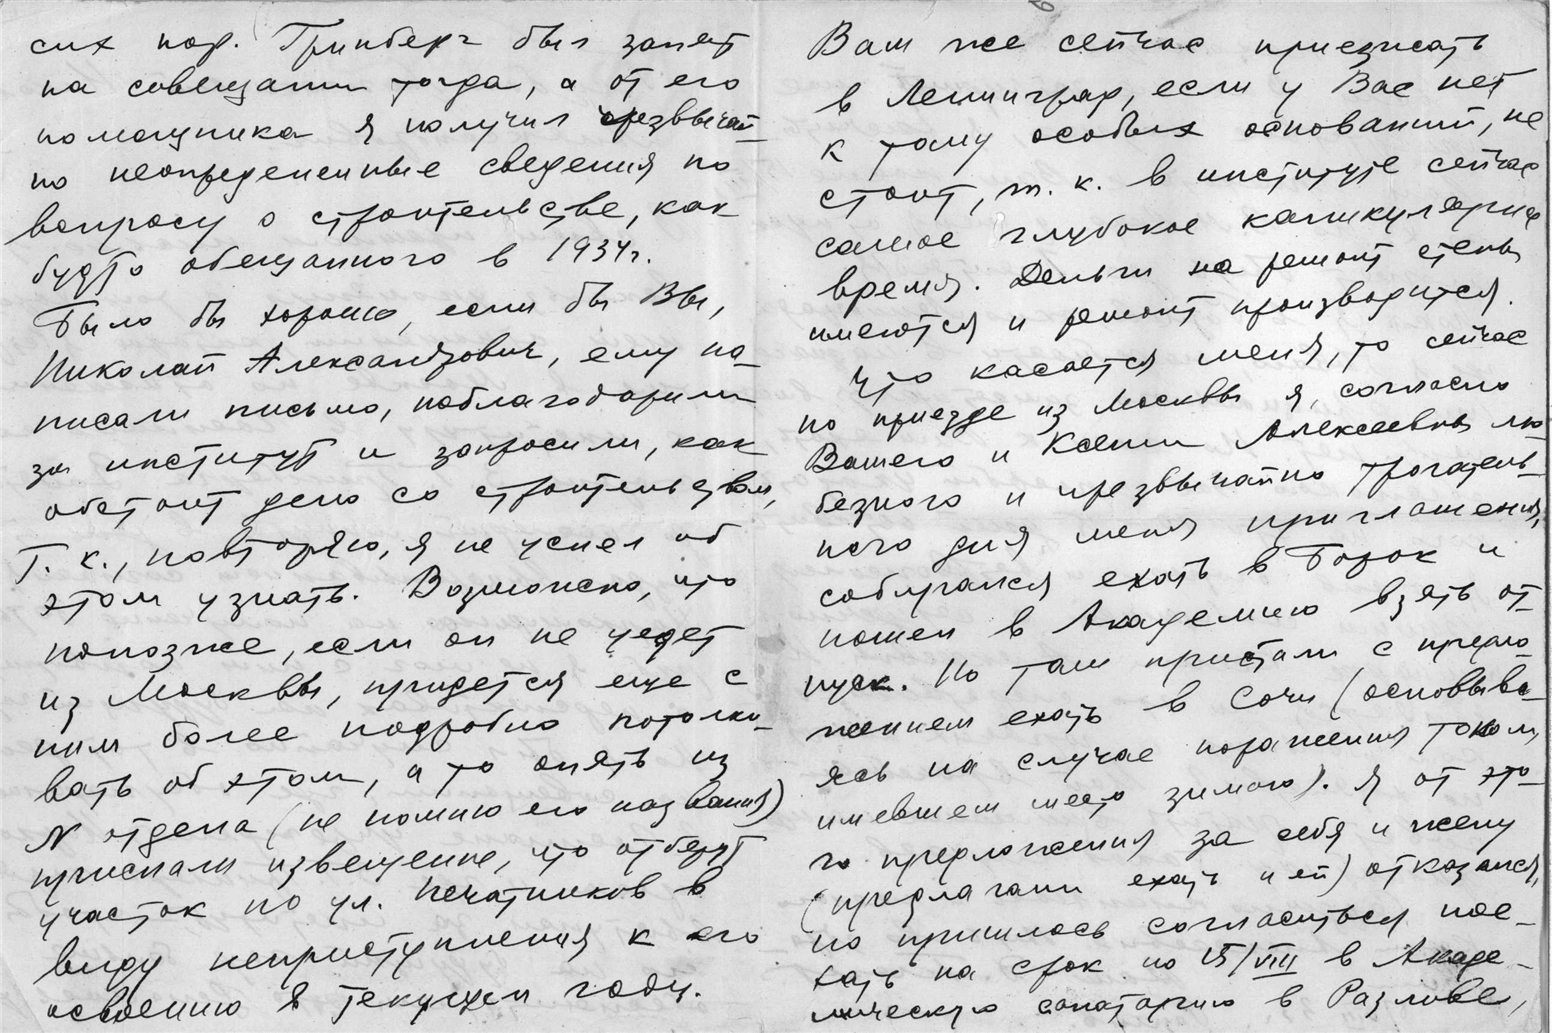 сих пор. Гринберг был занят
на совещании тогда, а от его
помощника я получил чрезвычай-
но неопределенные сведения по
вопросу о строительстве, как
будто обещанного в 1934г.
Было бы хорошо, если бы Вы,
Николай Александрович, ему на-
писали письмо, поблагодарили
за институт и запросили, как
обстоит дело со строительством,
т. к., повторяю, я не успел об
этом узнать. Возможно, что
попозже, если он не уедет
из Москвы, придется еще с
ним более подробно потолко-
вать об этом, а то опять из
N отдела (не помню его названия)
прислали извещение, что отберут
участок по ул. Печатников в
виду неприступления к его
освоению в текущем году.
Вам же сейчас приезжать
в Ленинград, если у Вас нет
к тому особых оснований, не
стоит, т. к. в институте сейчас
самое глубокое каникулярное
время. Деньги на ремонт стены
имеются и ремонт производится.
Что касается меня, то сейчас
по приезде из Москвы я, согласно
Вашего и Ксении Алексеевны лю-
безного и чрезвычайно трогатель-
ного для меня приглашения,
собирался ехать в Борок и
пошел в Академию взять от-
пуск. Но там пристали с предло-
жением ехать в Сочи (основыва-
ясь на случае поражения током,
имевшем место зимою). Я от это-
го предложения за себя и жену
(предлагали ехать и ей) отказался,
но пришлось согласиться пое-
хать на срок по 15/VIII в Акаде-
мическую санаторию в Разливе,